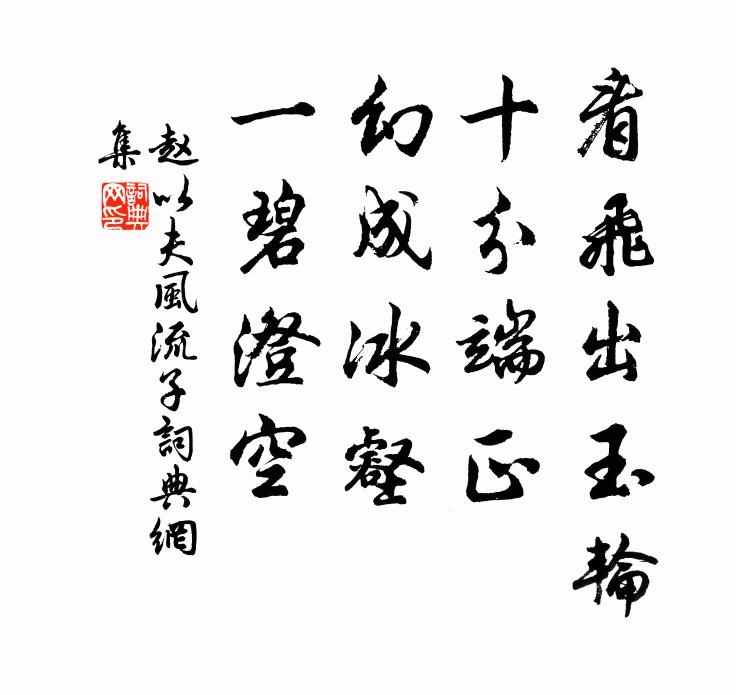 看飛出玉輪
十分端正
幻成冰壑
一碧澄空
赵以夫風流子詞典網
集
詞典
网印